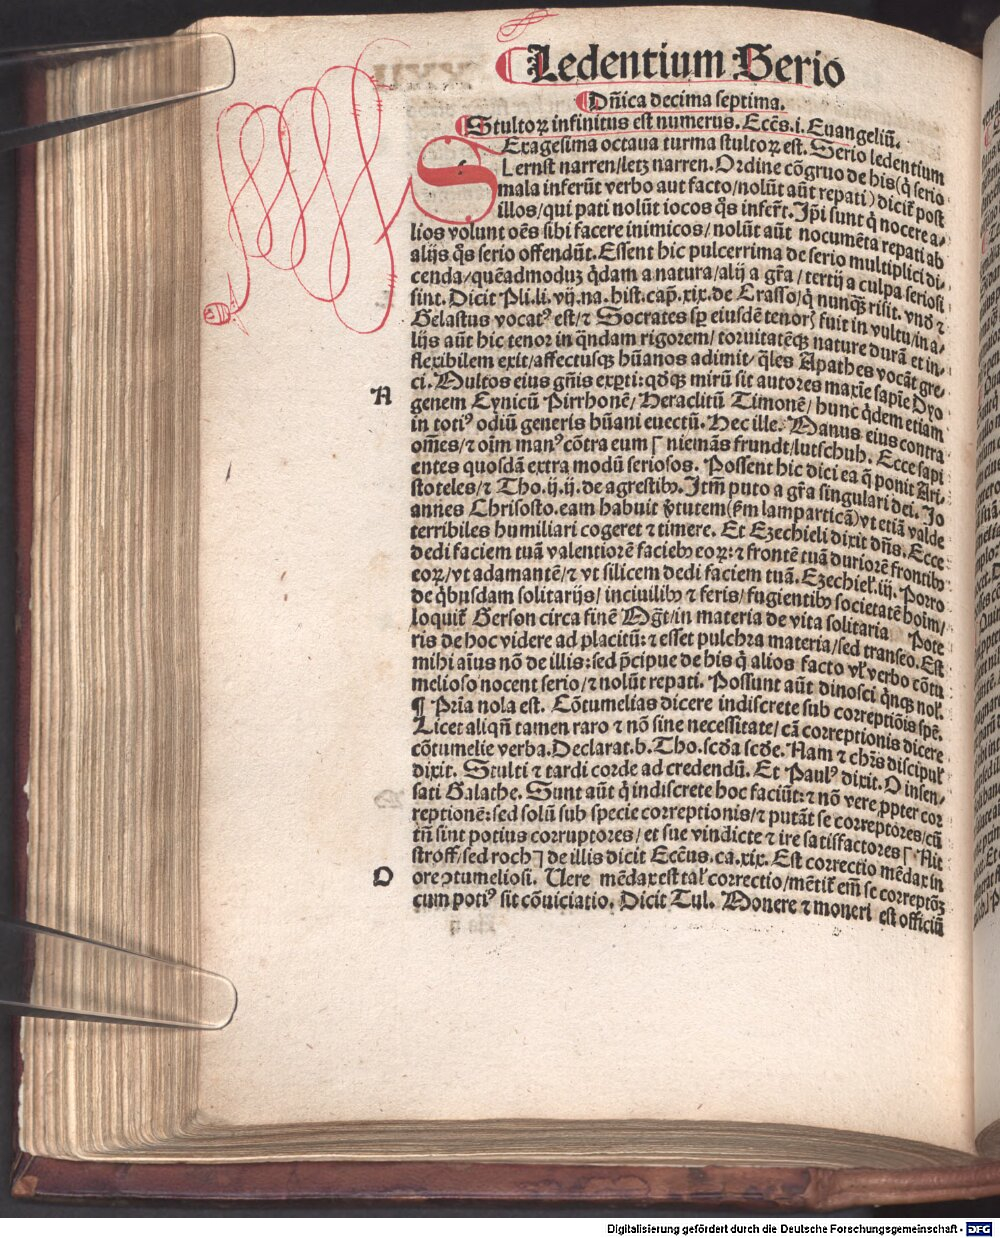 Ledentium Serio
Dñica decima septima.
Stultoꝝ infinitus est numerus. Eccẽs.i. Euangeliũ.
SExagesima octaua turma stultoꝝ est. Serio ledentium
Lernst narren/letz narren. Ordine cõgruo de his (q̃ serio
mala inferũt verbo aut facto/nolũt aũt repati) dicit̃ post
illos/qui pati nolũt iocos q̃s infert̃. Ip̃i sunt q̃ nocere a⸗
lios volunt oẽs sibi facere inimicos/nolũt aũt nocumẽta repati ab
alijs q̃s serio offendũt. Essent hic pulcerrima de serio multiplici di⸗
cenda/quẽadmoduꝫ q̃dam a natura/alij a gr̃a/tertij a culpa seriosi
sint. Dicit Pli.li.vij.na.hist.cap̃.xix.de Crasso/q̃ nunq̃ꝫ risit. vñ ⁊
Gelastus vocatꝰ est/⁊ Socrates sp̃ eiusdẽ tenoris fuit in vultu/in a⸗
lijs aũt hic tenor in q̃ndam rigorem/toruitatẽqꝫ nature durã et in⸗
flexibilem exit/affectusqꝫ hũanos adimit/q̃les Apathes vocãt gre⸗
A
ci. Multos eius gñis exp̃ti: qdqꝫ mirũ sit autores maxĩe sapiẽ Dyo
genem Cynicũ Pirrhonẽ/Heraclitũ Timonẽ/hunc q̃dem etiam
in totiꝰ odiũ generis hũani euectũ. Hec ille. Manus eius contra
om̃es/⁊ oĩm manꝰ cõtra eum ⌈ niemãs frundt/lutschuh. Ecce sapi
entes quosdã extra modũ seriosos. Possent hic dici ea q̃ ponit Ari⸗
stoteles/⁊ Tho.ij.ij.de agrestibꝫ. Itm̃ puto a gr̃a singulari dei. Jo
annes Chrisosto.eam habuit ꝟtutem (ẞm lamparticã) vt etiã valde
terribiles humiliari cogeret ⁊ timere. Et Ezechieli dixit dñs. Ecce
dedi faciem tuã valentiorẽ faciebꝫ eoꝝ: ⁊ frontẽ tuã duriorẽ frontibꝫ
eoꝝ/vt adamantẽ/⁊ vt silicem dedi faciem tuã. Ezechiel̃.iij. Porro
de q̃busdam solitarijs/inciuilibꝫ ⁊ feris/fugientibꝫ societatẽ hoĩm/
loquit̃ Gerson circa finẽ Mg̃t/in materia de vita solitaria Pote
ris de hoc videre ad placitũ: ⁊ esset pulchra materia/sed transeo. Est
mihi aĩus nõ de illis: sed p̃cipue de his q̃ alios facto vl̃ verbo cõtu
melioso nocent serio/⁊ nolũt repati. Possunt aũt dinosci q̃nqꝫ nol̃.
¶ Pria nola est. Cõtumelias dicere indiscrete sub correptiõis spẽ.
Licet aliqñ tamen raro ⁊ nõ sine necessitate/cã correptionis dicere
cõtumelie verba. Declarat.b.Tho.scd̃a scd̃e. Nam ⁊ chr̃s discipul̃
dixit. Stulti ⁊ tardi corde ad credendũ. Et Paulꝰ dixit. O insen⸗
sati Galathe. Sunt aũt q̃ indiscrete hoc faciũt: ⁊ nõ vere ꝓpter cor
reptionẽ: sed solũ sub specie correptionis/⁊ putãt se correptores/cũ
tñ sint potius corruptores/et sue vindicte ⁊ ire satisfactores ⌈ Nit
stroff/sed roch ⌉ de illis dicit Eccũs.ca.xix. Est correctio mẽdax in
O
ore ↄtumeliosi. Uere mẽdax est tal̃ correctio/mẽtit̃ em̃ se correptõꝫ
cum potiꝰ sit cõuiciatio. Dicit Tul. Monere ⁊ moneri est officiũ
Digitalisierung gefördert durch die Deutsche Forschungsgemeinschaft - DFG